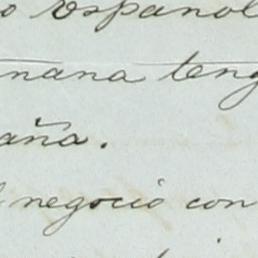 o Español
nana teng
aña.
l negocio con